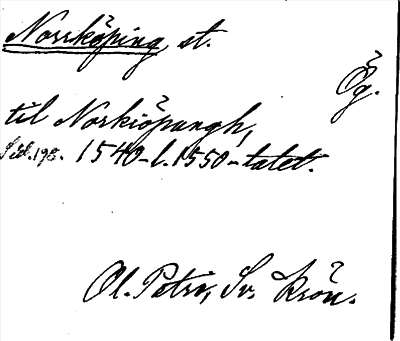 Norrköping, st.
Ög.
til Norkiöpungh,
Sid. 198. 1540-l. 1550-talet.
Ol. Petri, Sv. krön.